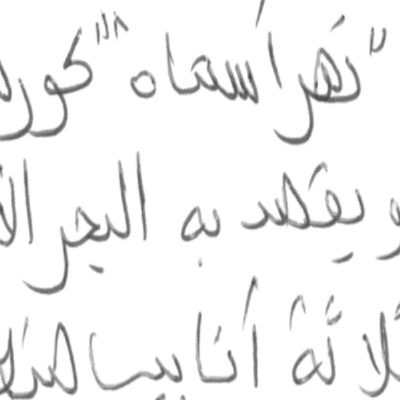 " نهر أسماه " كور
و يقصد به البحر الأ
ثلاثة أنابيب